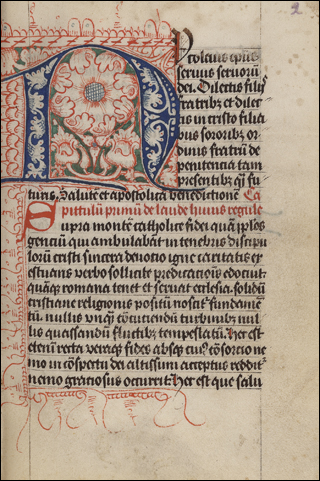 2
Nycolaus ep̄us
seruus seruorū
dei. Dilectis filijs
fratribꝫ et dilec
tis in cristo filia
bus sororibꝫ or
dinis fratrū de
penitentia tam
presentibꝫ qͣ̄ fu
turis, Salutē et apostolicā benedictionē Ca
pittulū primū de laude huius regule
Supra montē catholice fidei quā ip̄sos
genciū qui ambulabāt in tenebris discipu
lorū cristi sincera deuotio igne caritatis ex
estuans verbo sollicite predicationis edocuit
quāqꝫ romana tenet et seruat ecclesia. solidū
cristiane religionis positū noscit᷑ fundamē
tū. nullis vnqͣ̄ cōcutiendū turbinibꝫ nul
lis quassandū fluctibꝫ tempestatū. Hec est
etenī recta veraqꝫ fides absqꝫ cuiꝰ cōsorcio ne
mo in cōspectu dei altissimi acceptus reddit᷑
nemo graciosus occurrit. Hec est que salu